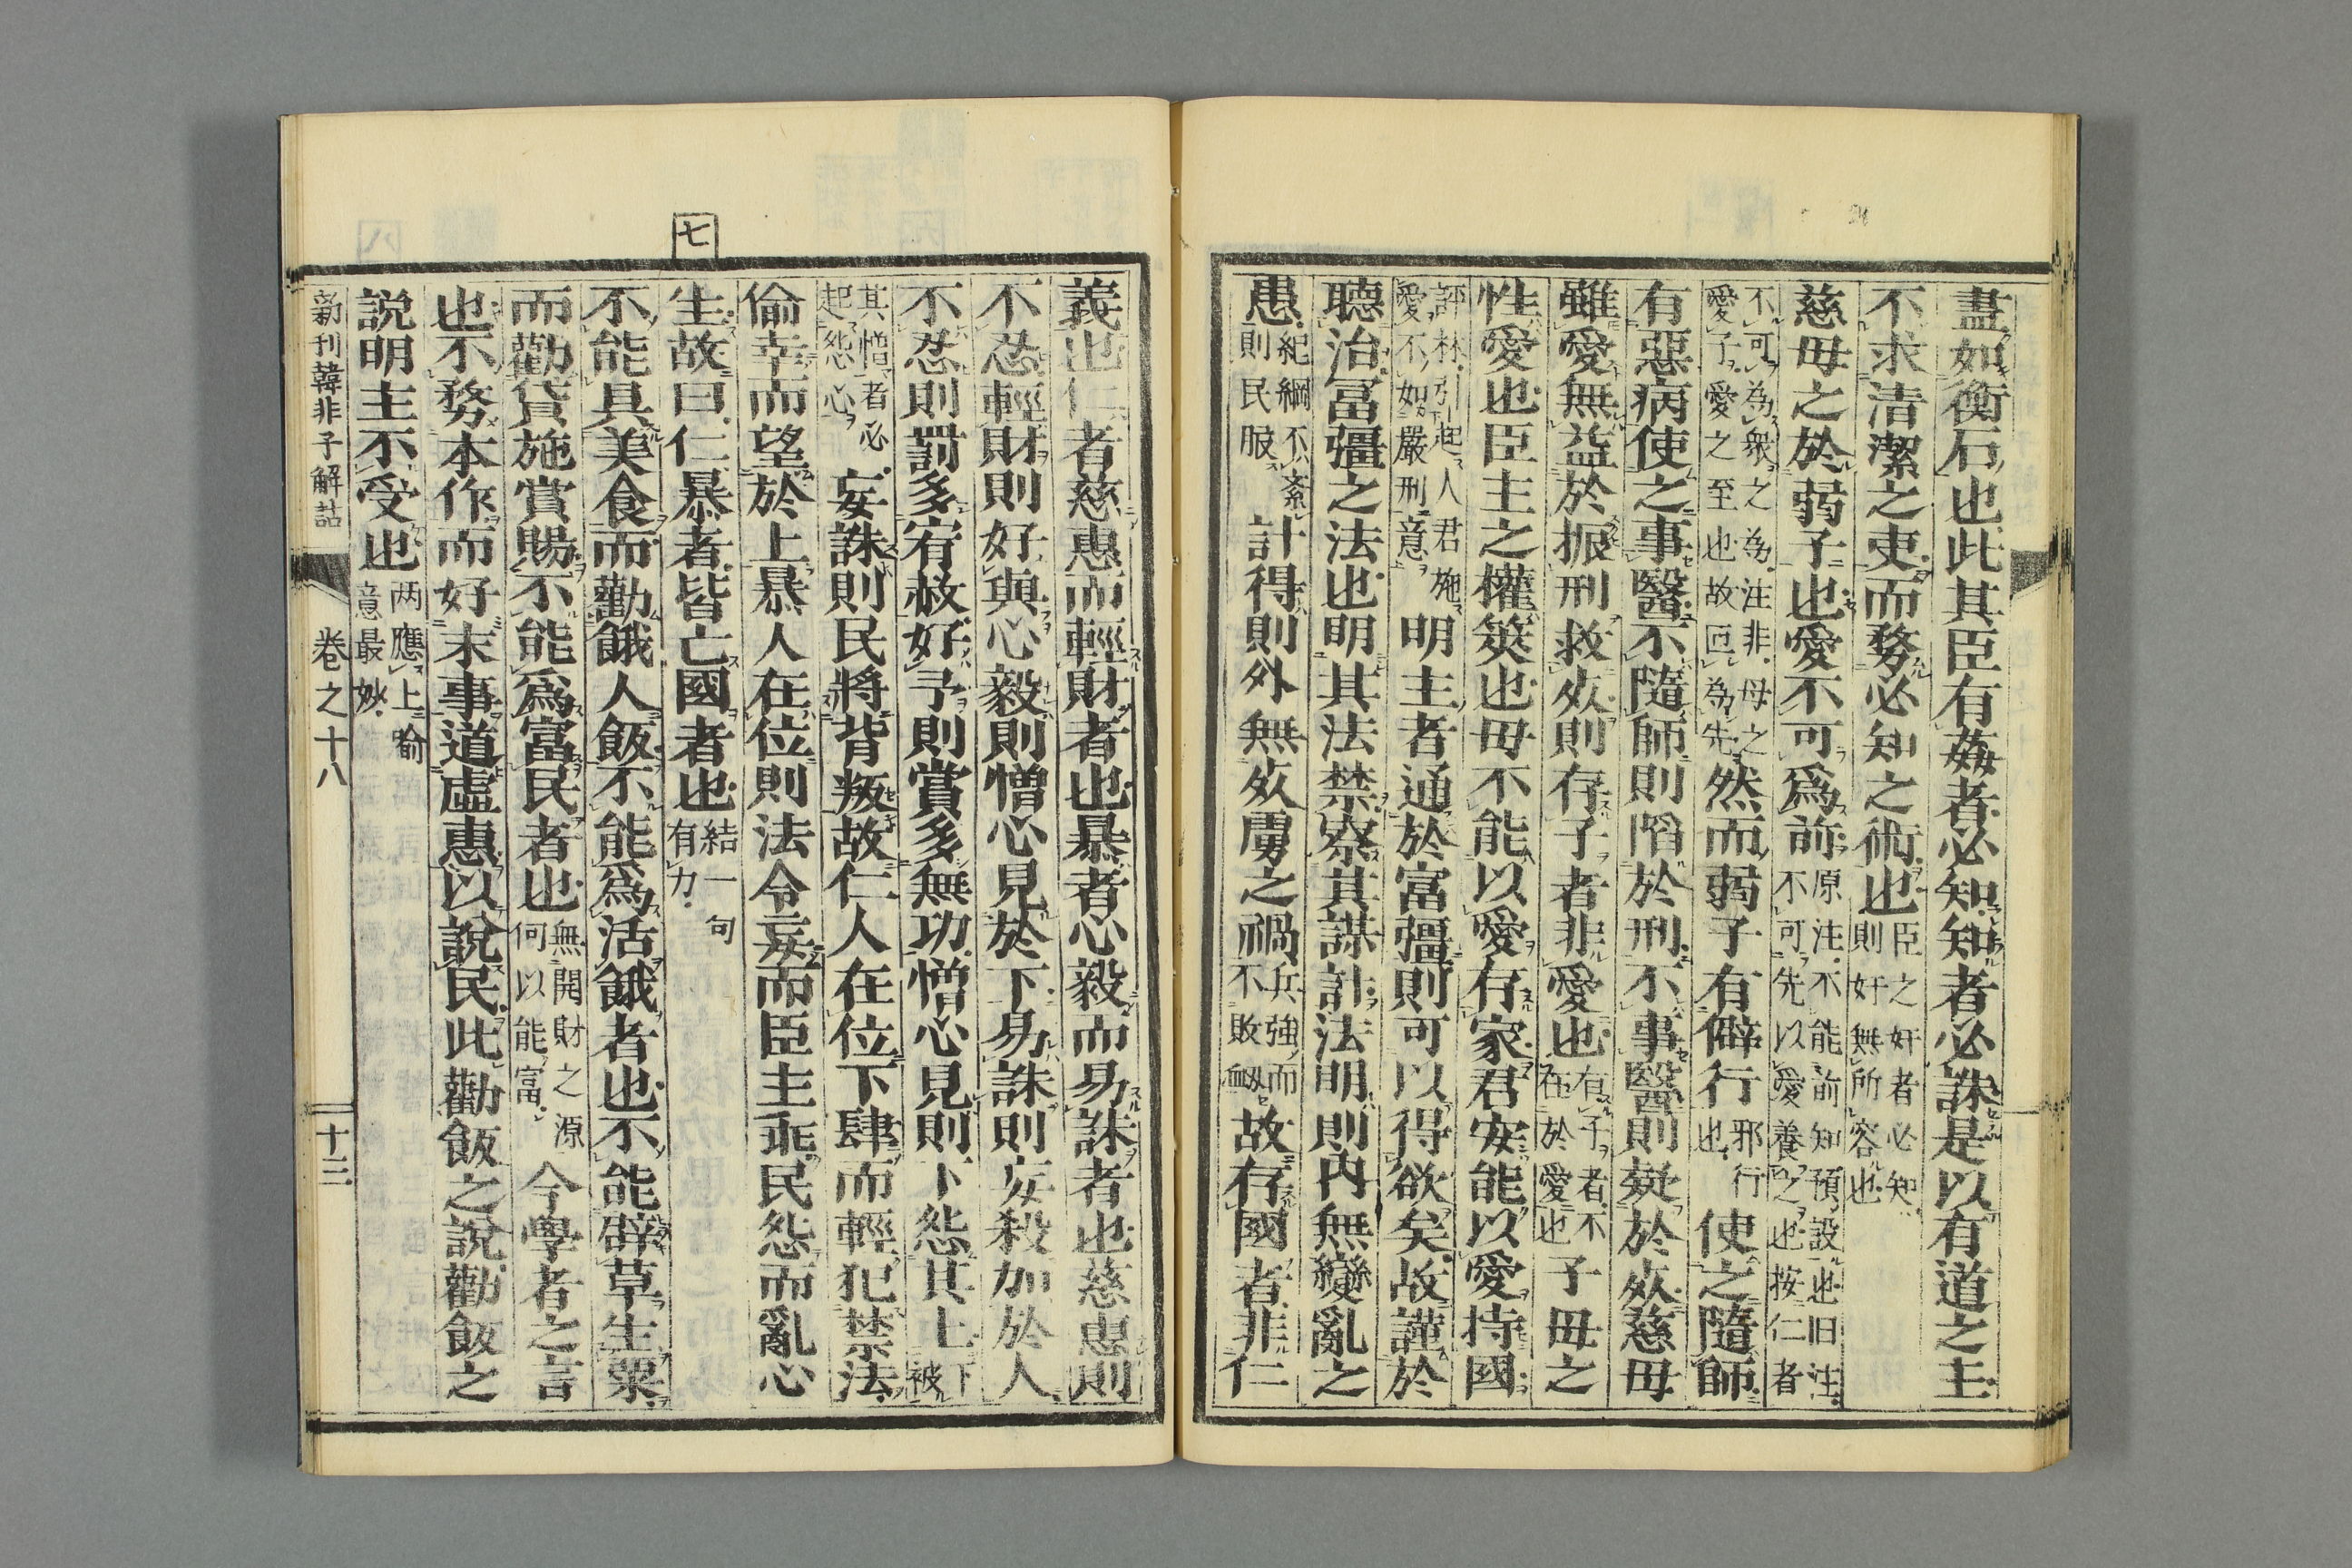 盡如衡石也此其臣有姦者必知知者必誅是以有道之主
不求淸潔之吏而務必知之術也臣之奸者必知則奸無所容也
慈母之於弱子也愛不可爲前原注不能前知預設也旧注不可先以愛養之也按仁者
不可為衆之為注非母之愛子愛之至也故叵為先然而弱子有僻行邪行也使之隨師
有惡病使之事醫不隨師則陷於刑不事醫則疑於𣦸慈母
雖愛無益於振刑救𣦸則存子者非愛也有子者不在於愛也子母之
性愛也臣主之權筴也母不能以愛存家君安能以愛持國
評林引起人君施愛不如嚴刑意明主者通於富彊則可以得欲矣故謹於
聽治冨彊之法也明其法禁察其謀計法明則內無變亂之
患紀綱不紊則民服計得則外無𣦸虜之禍兵強而不敗衂故存國者非仁
七
義也仁者慈惠而輕財者也暴者心毅而易誅者也慈惠則
不忍輕財則好與心毅則憎心見於下易誅則妄殺加於人
不忍則罰多宥赦好予則賞多無功憎心見則下怨其上下被
其憎者必起怨心妄誅則民將背叛故仁人在位下肆而輕犯禁法
偷幸而望於上暴人在位則法令妄而臣主乖民怨而亂心
生故曰仁暴者皆亡國者也結一句有力
不能具美食而勸餓人飯不能爲活餓者也不能辟草生粟
而勸貸施賞賜不能爲富民者也無開財之源何以能富今學者之言
也不務本作而好末事道虛惠以說民此勸飯之說勸飯之
說明主不受也両應上喻意最妙
新刊韓非子解詁 卷之十八 十三